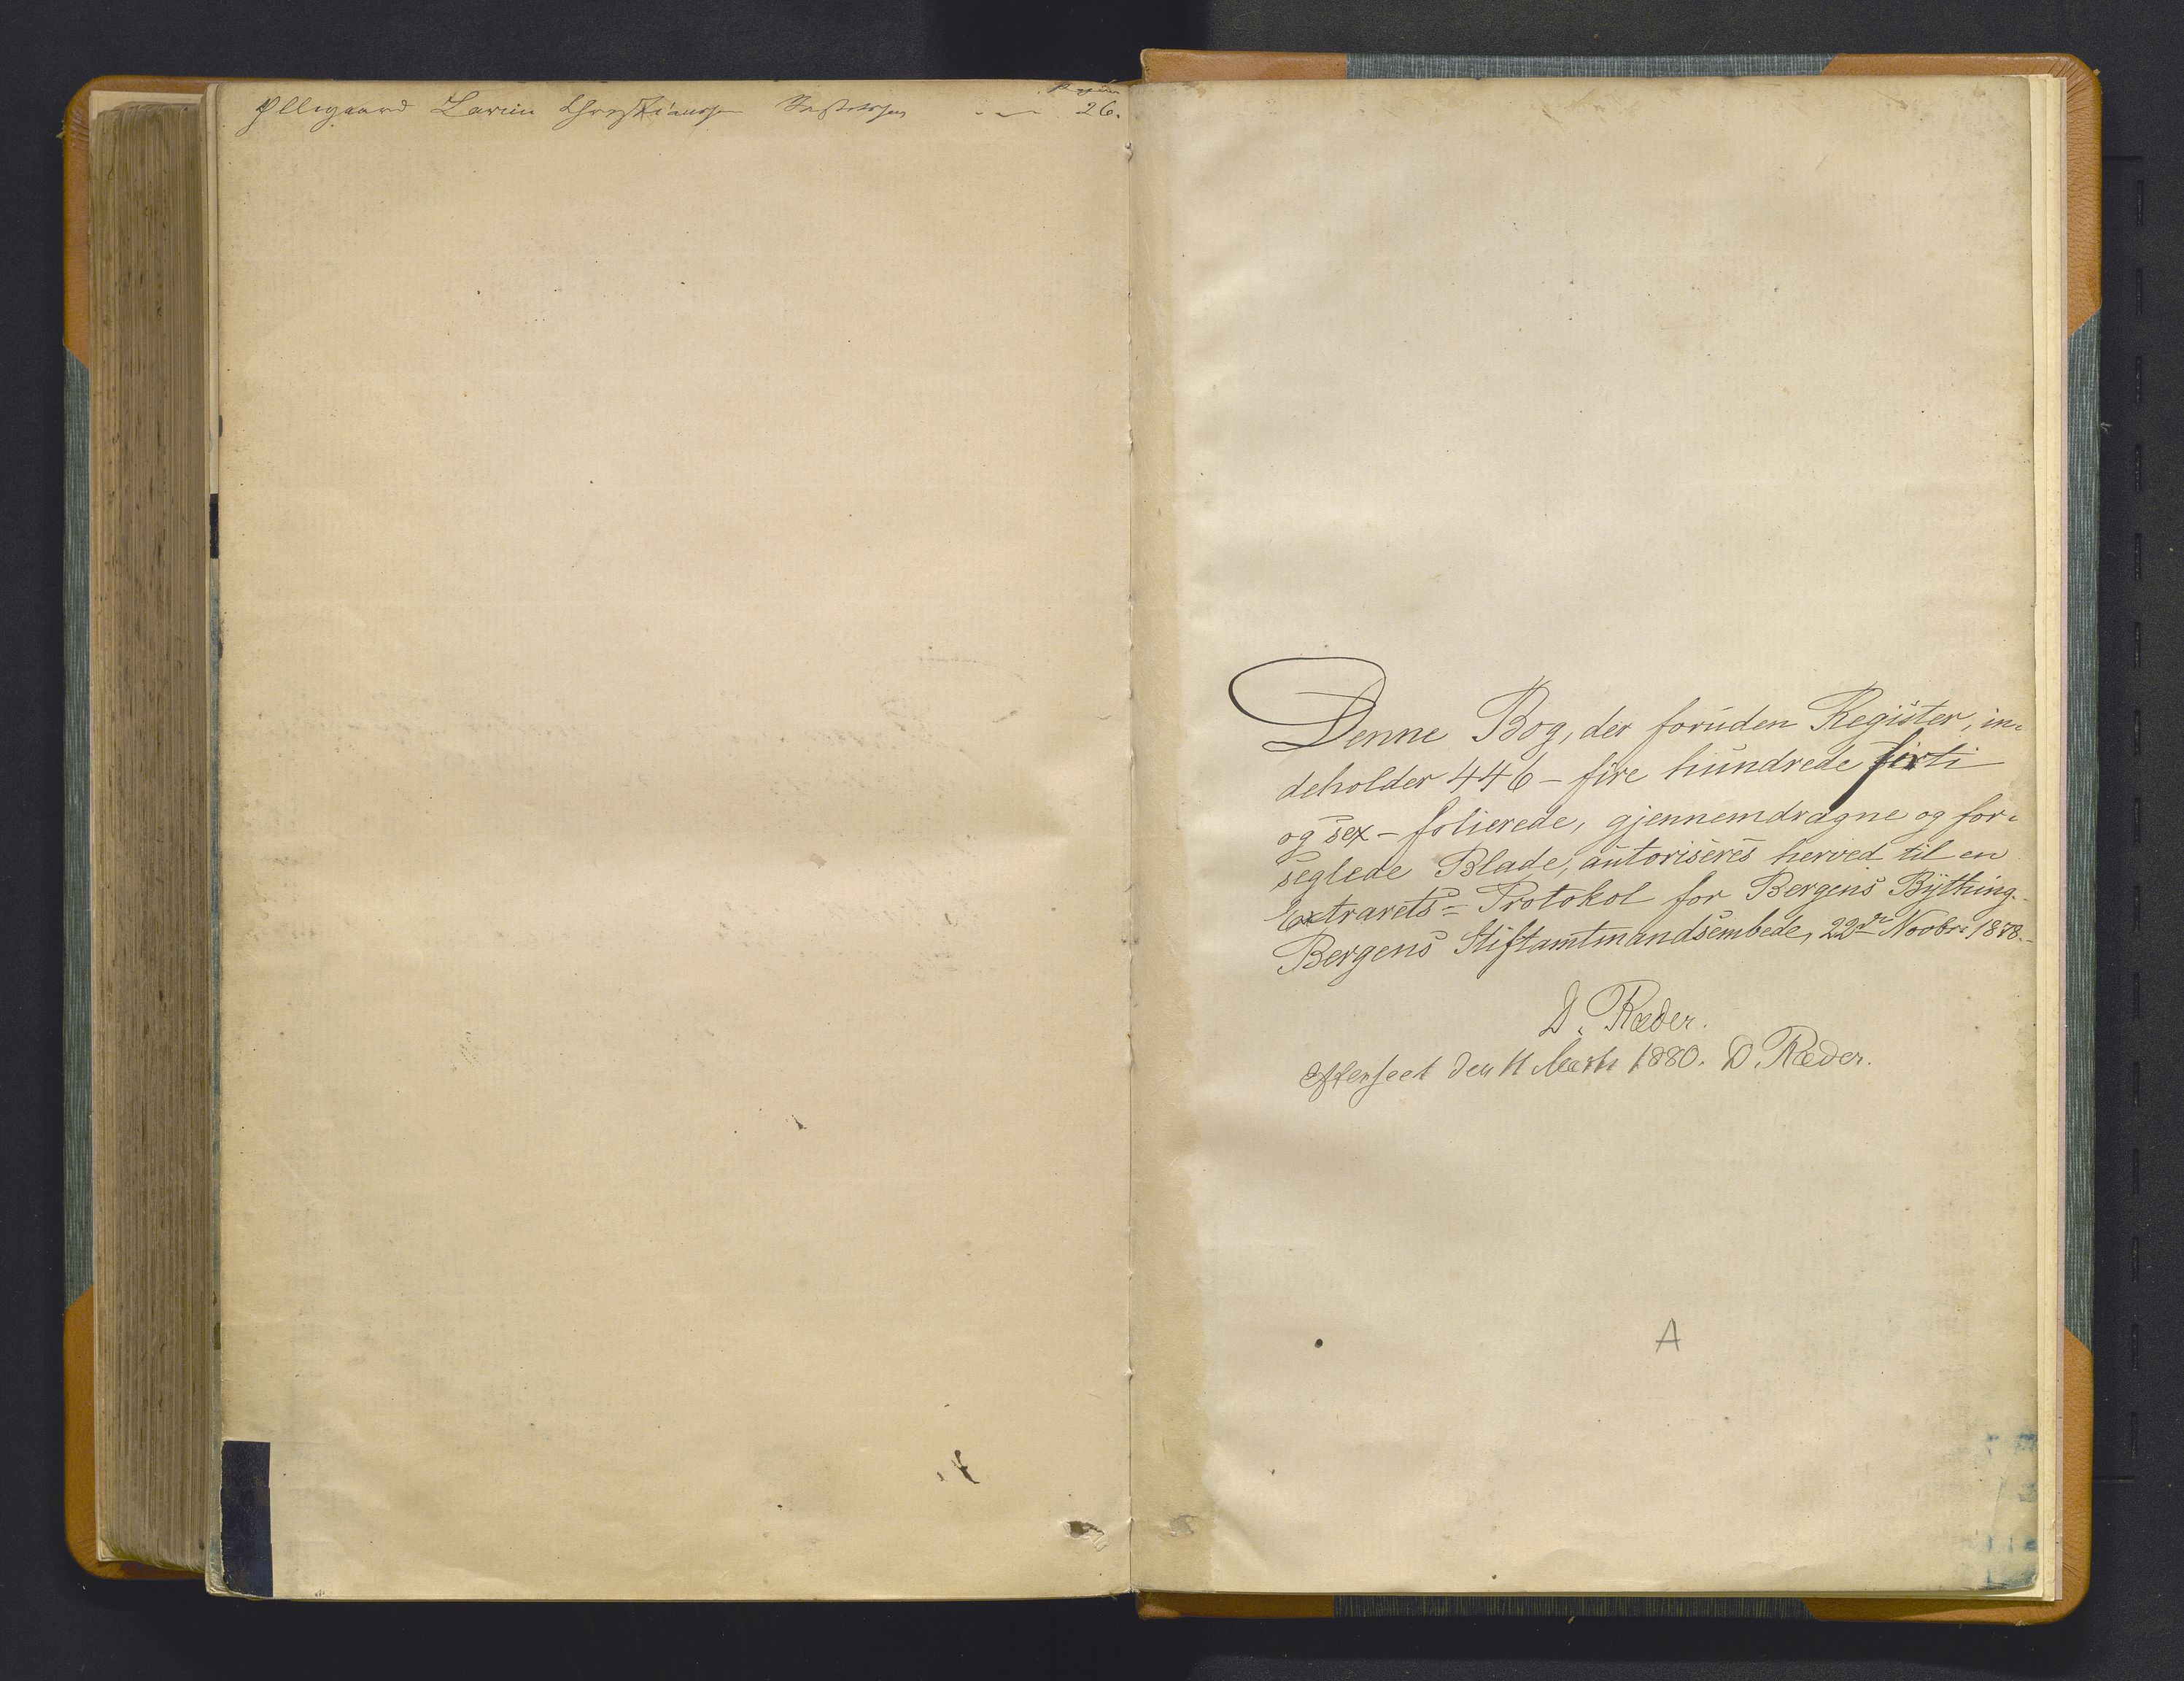 Øllegaard Larine Christiansen 26.
Denne Bog, der foruden Register, in-
deholder 446 - fire hundrede firti
og sex - folierede, gjennemdragne og for-
seglede Blade, autoriseres herved til en
Extrarets = Protokol for Bergens Bything.
Bergens Stiftamtmandsembede, 22de Novbr 1878.-
D. Ræder.
Efterseet den 11 Marts 1880. D. Ræder.
A